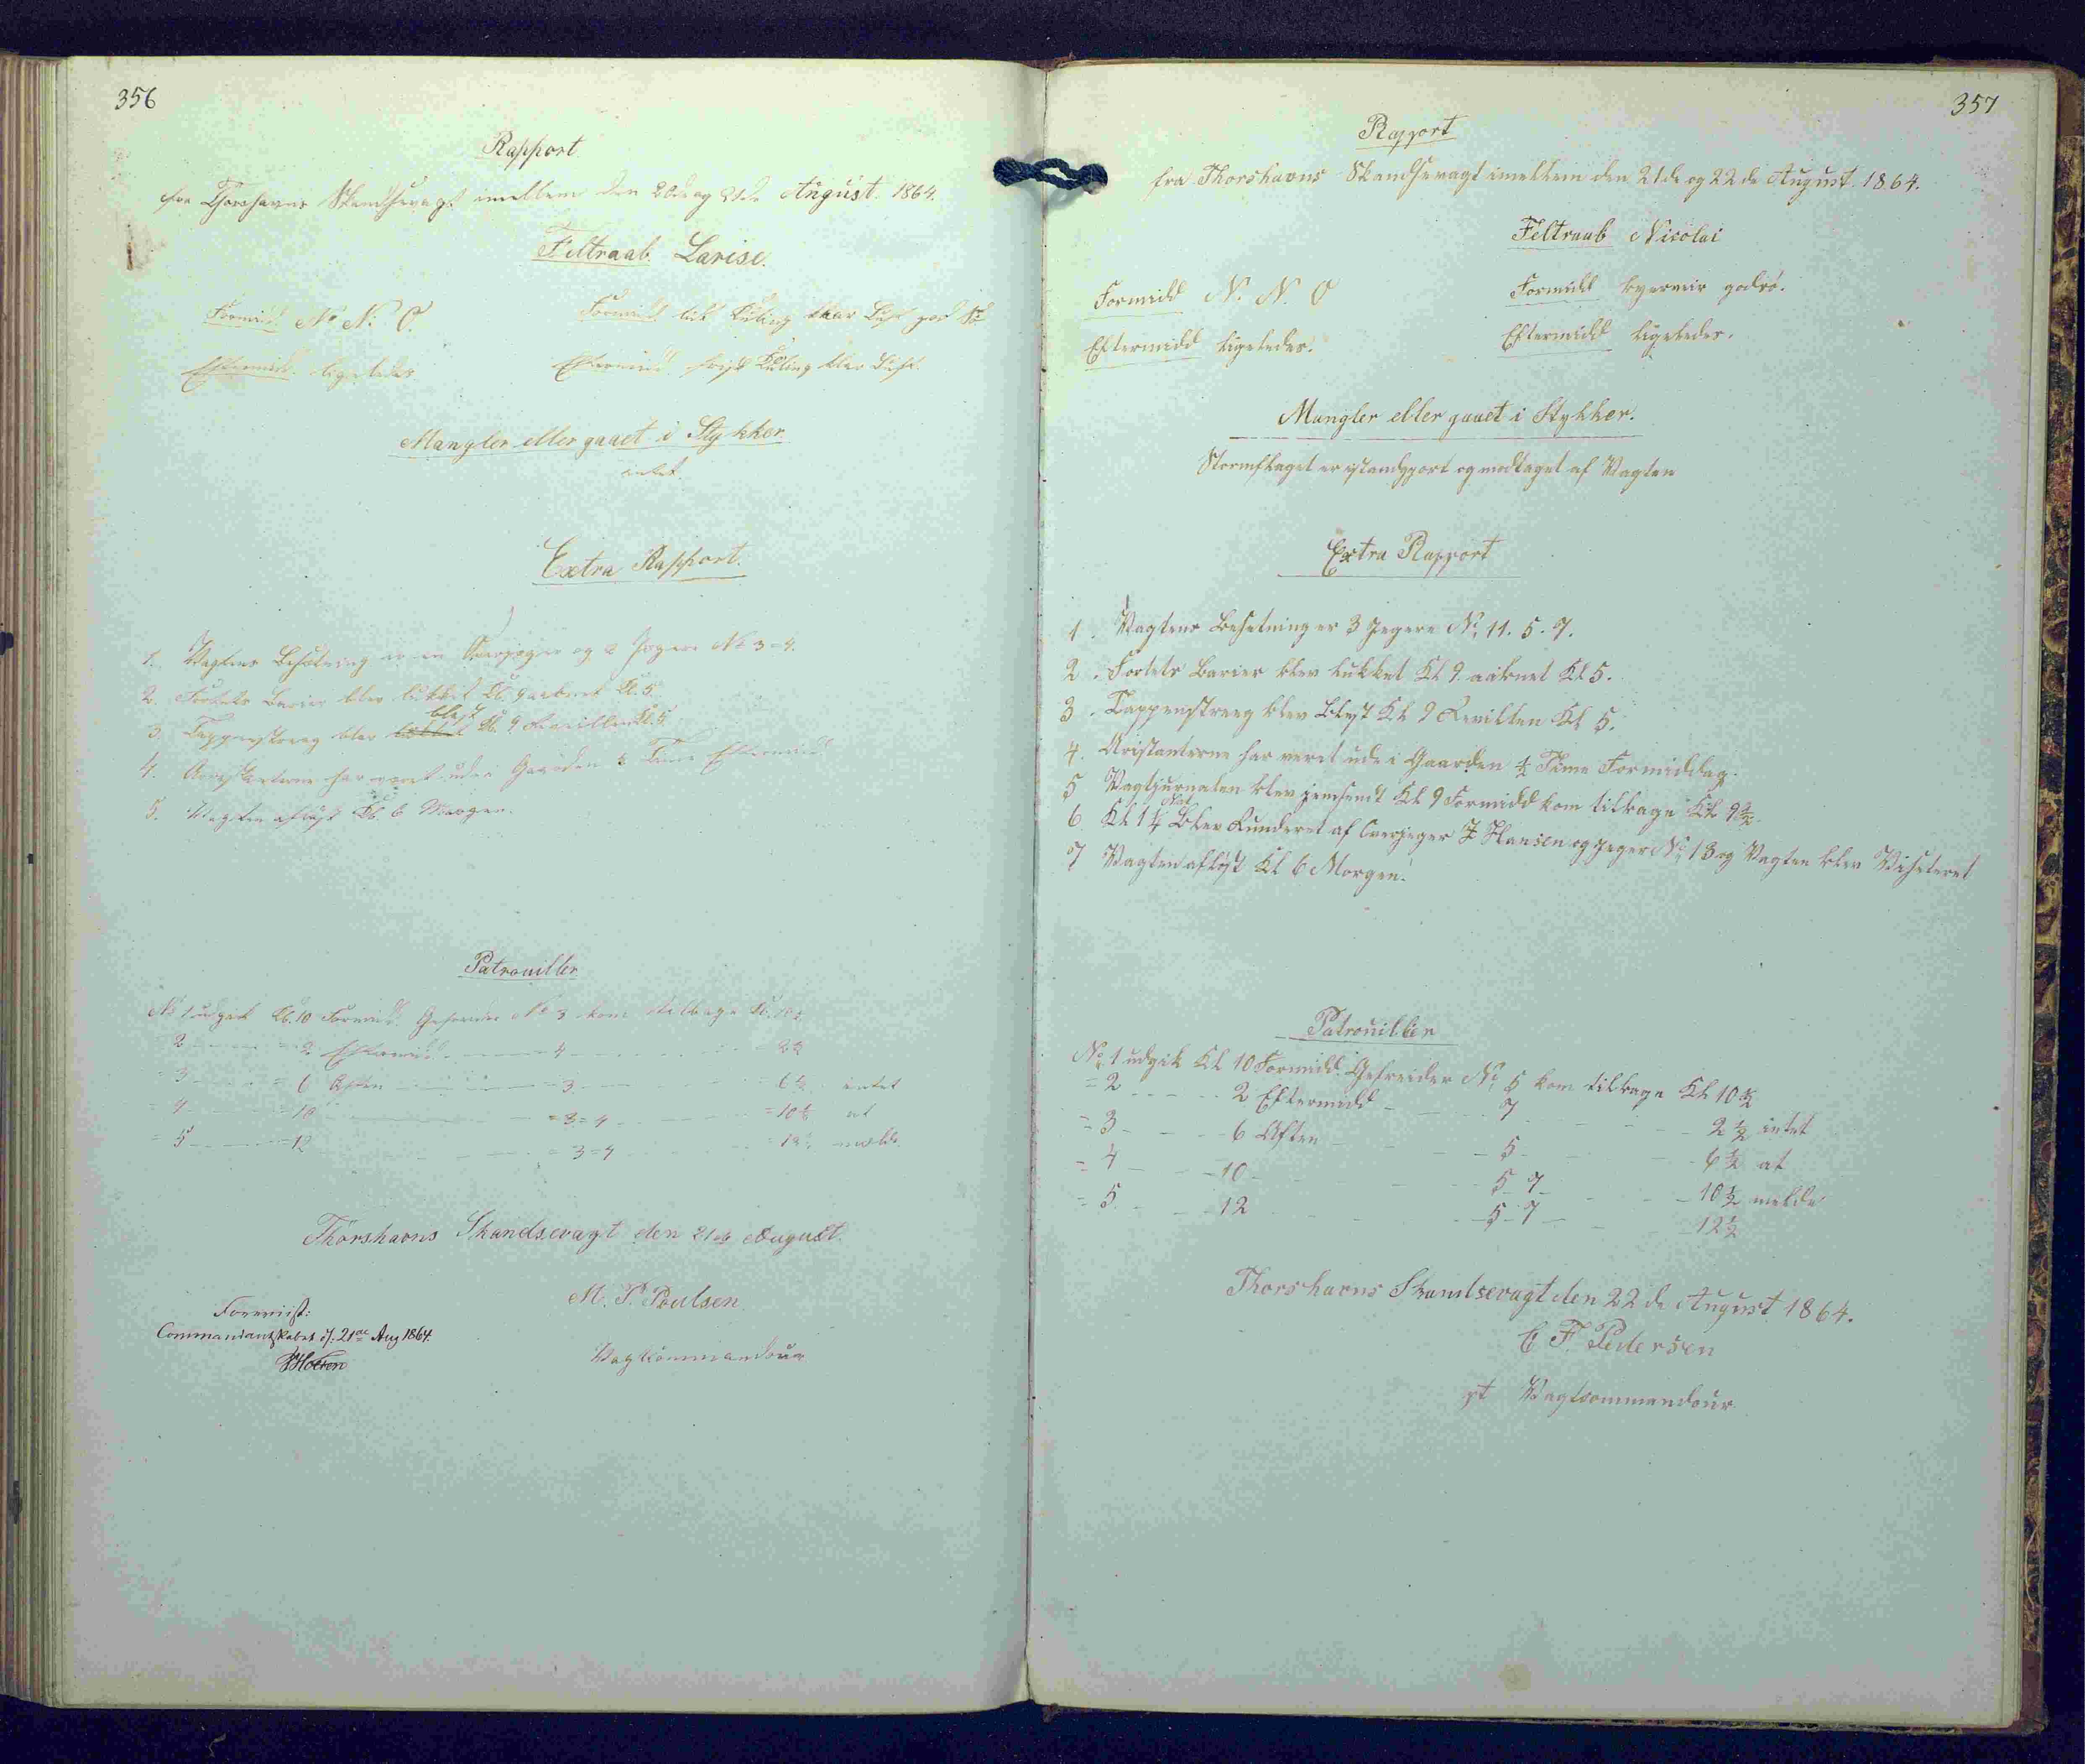 356
Rapport
fra Thorshavns Skandsevagt imellem den 20de og 21de August. 1864.
Feltraab. Larise.
Formid. N. N. O.
Formid. lidt Kuling klar Luft god Sø
Eftermid. ligeledes
Eftermid. frisk Kuling klar Luft.
Mangler eller gaaet i Stykker
intet.
Extra Rapport.
1. Vagtens Besætning er en Overjæger og 2 Jægere No 3=4.
2. Fortets Barier blev lukket Kl. 9 aabnet Kl. 5.
3. Tappenstreeg blev blæst Kl. 9 Reveillen Kl. 5.
4. Arrestanterne har været ude i Gaarden ½ Time Eftermid
5. Vagten afløst Kl. 6 Morgen.
Patrouiller
No 1 udgik Kl. 10 Formid. Gefreider No 3 kom tilbage Kl. 10½
2 - - 2 Eftermid. - - 4 - - 2½
= 3 - - = 6 Aften - - 3 - - = 6½ intet
= 4 - - = 10 - - = 3=4 - - = 10½ at
= 5 - - = 12 - - = 3=4 - - = 12½ melde.
Thorshavns Skandsevagt den 21de August.
M. P. Poulsen
Vagtkommandeur
Foreviist:
Commandantskabet d. 21de Aug 1864.
Holten
357
Rapport
fra Thorshavns Skandsevagt imellem den 21de og 22de August. 1864.
Feltraab Nicolai
Formidd N. N. O
Formidd
Eftermidd ligeledes.
Eftermidd ligeledes.
Mangler eller gaaet i Stykker.
Stormflaget er istandgjort og modtaget af Vagten
Extra Rapport
1. Vagtens Besetning er 3 Jegere No 11. 5. 7.
2. Fortets Barier blev lukket Kl 9. aabnet Kl 5.
3. Tappenstreeg blev Blest Kl 9 Revillen Kl 5.
4. Aristanterne har veret ude i Gaarden ½ Time Formiddag.
5 Vagtjurnalen blev hensendt Kl 9 Formidd kom tilbage Kl 9½.
6. Kl 1¼ Nat Blev Runderet af Overjeger J Hansen og Jeger No 13 og Vagten blev Visiteret
7 Vagten afløst Kl 6 Morgen.
Patrouillen
No 1 udgik Kl 10 Formidd. Gefreider No 5 kom tilbage Kl 10½
= 2 - - 2 Eftermidd - - 7 - - 2½ intet
= 3 - - 6 Aften - - 5 - - 6½ at
= 4 - - 10 - - 5 7 - - 10½ melde
= 5. - - 12 - - 5-7 - - 12½
Thorshavns Skandsevagt den 22de August. 1864.
C F. Pedersen
pt Vagtcommandeur